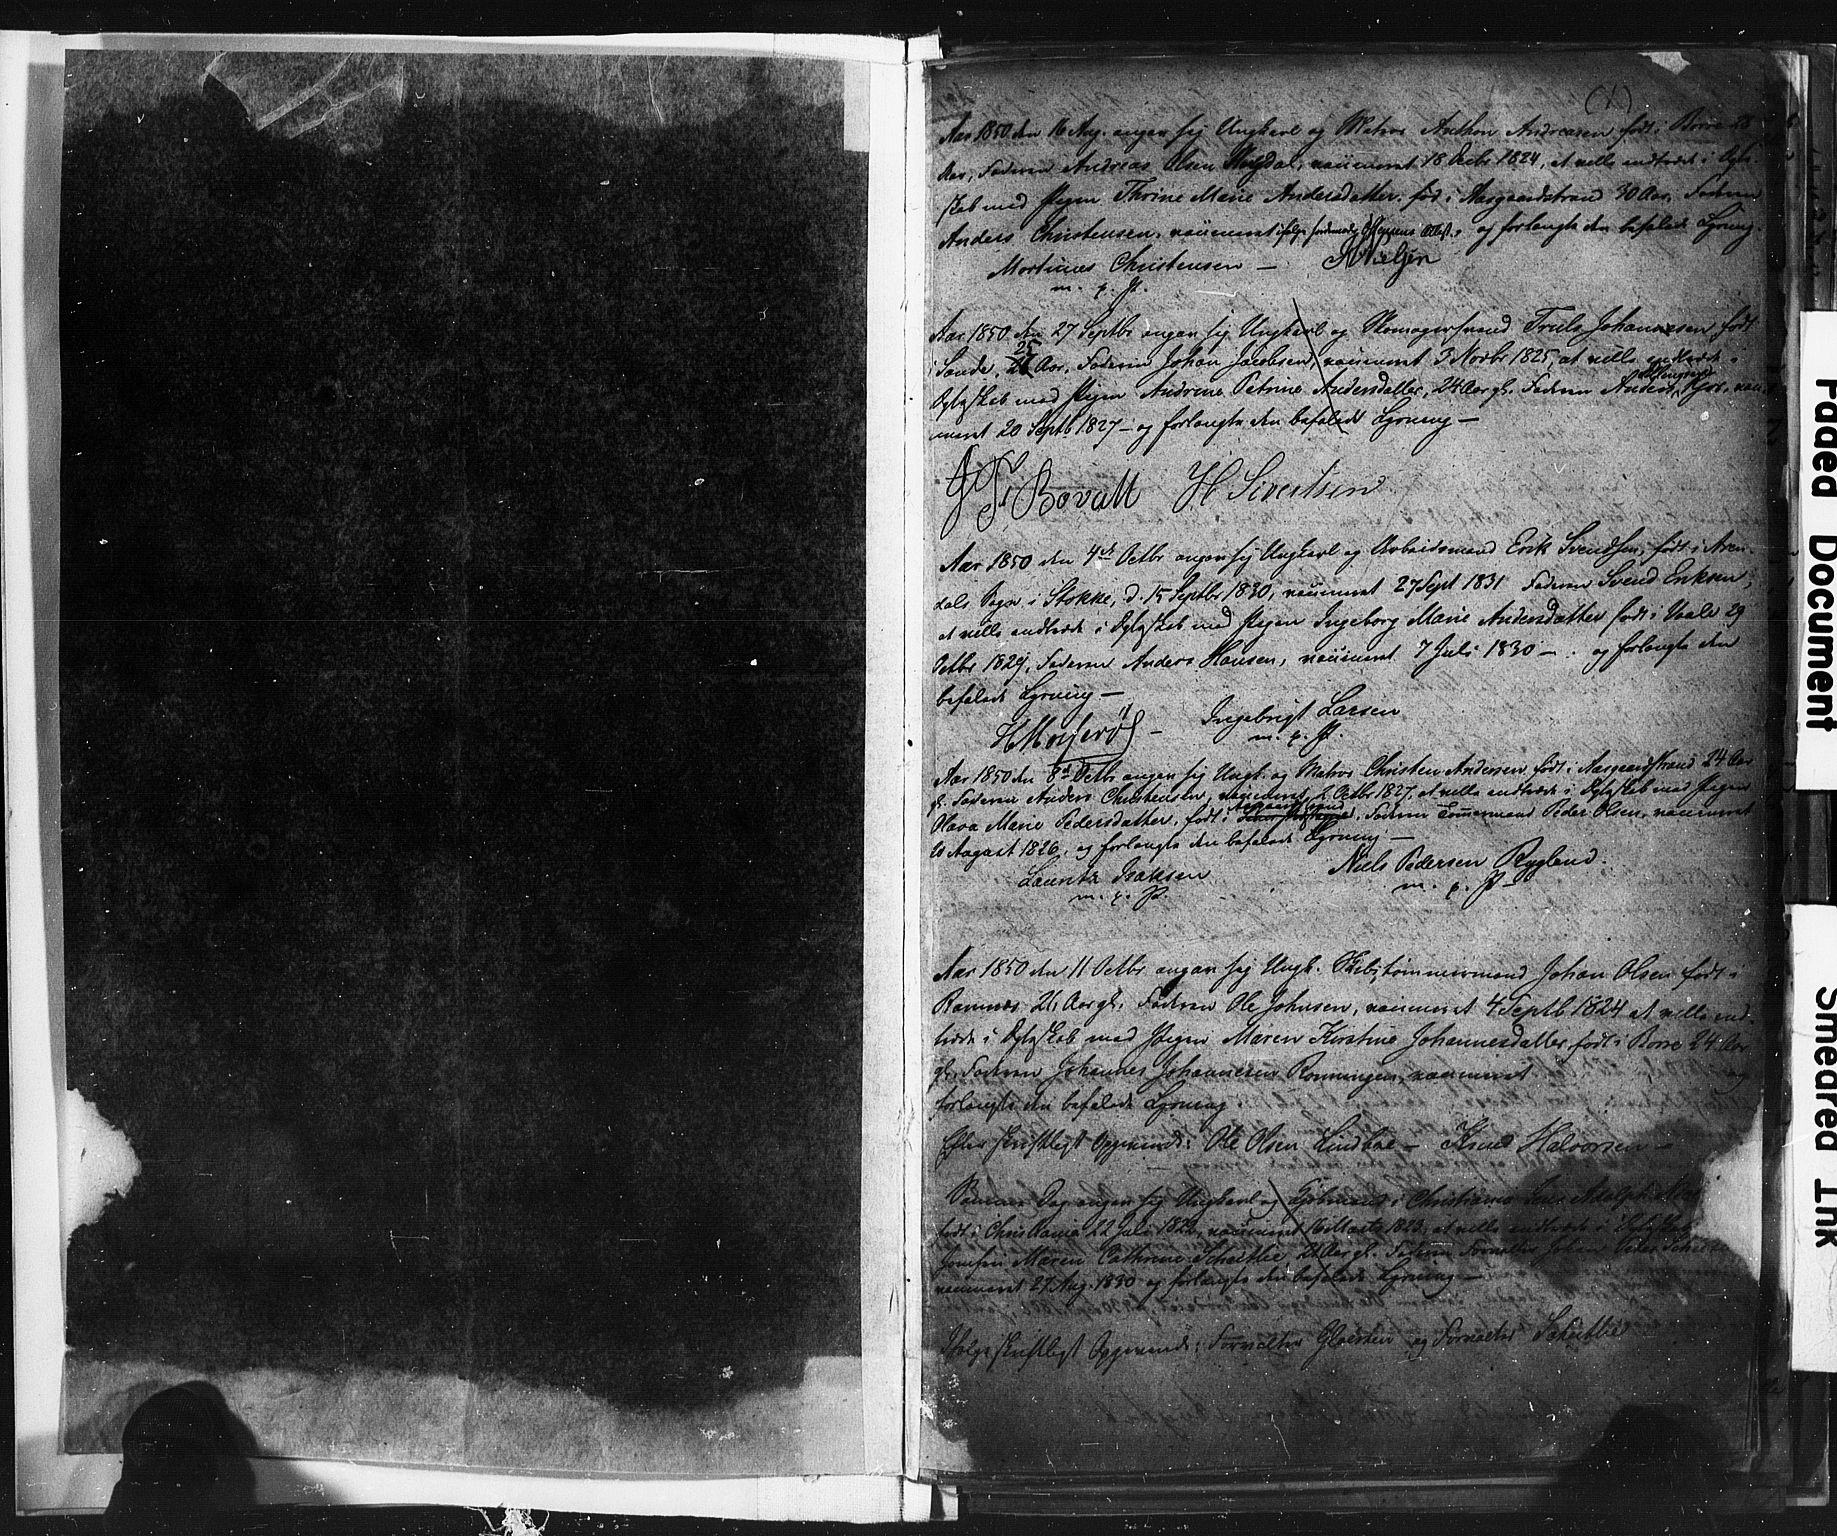 (1)
Aar 1850 den 16 Aug. angav sig Ungkarl og Matros Anthon Andreasen, født i Borre 28
Aar, Faderen Andreas Olsen vaccineret 18 Decbr 1824, at ville indtræde i Ægte-
skab med Pigen Thrine Marie Andersdatter, født i Aasgaardstrand 30 Aar, Faderen
Anders Christensen, vaccineret ifølge Attest, og forlangte den befalede Lysning.
Mortinus Christensen — Nielsen
m. p. P.
Aar 1850 den 27 Septbr angav sig Ungkarl og Skomagersvend Truls Johannesen, født
i Sande, 25 Aar, Faderen Johan Jacobsen, vaccineret 3 Novbr 1825 at ville indtræde i
Ægteskab med Pigen Andrine Petrine Andersdatter, 24 Aar gl. Faderen Anders vacci-
neret 20 Septb 1827 — og forlangte den befalede Lysning —
Bovall H Sivertsen
Aar 1850 den 4de Octbr angav sig Ungkarl og Arbeidsmand Erik Svendsen, født i Aren-
dals Sogn i Stokke, d. 15 Septbr 1830, vaccineret 27 Sept 1831 Faderen Svend Eriksen,
at ville indtræde i Ægteskab med Pigen Ingeborg Marie Andersdatter født i Vaale 29
Octbr 1829, Faderen Anders Hansen, vaccineret 7 Juli 1830 — og forlangte den
befalede Lysning —
Ingebrigt Larsen
m. p. P.
Aar 1850 den 8de Octbr angav sig Ungk. og Matros Christen Andersen født i Aasgaardstrand 24 Aar
gl. Faderen Anders Christensen, vaccineret 2 Octbr 1827, at ville indtræde i Ægteskab med Pigen
Olava Marie Pedersdatter, født i Aasgaardstrand, Faderen Tømmermand Peder Olsen, vaccineret
August 1826, og forlangte den befalede Lysning —
Lauritz Isaksen Niels Pedersen Rygland.
m. p. P. m. p. P.
Aar 1850 den 11 Octbr angav sig Ungk. Skibstømmermand Johan Olsen født i
Ramnes 26 Aar gl. Faderen Ole Johnsen, vaccineret 4 Septb 1824 at ville ind-
træde i Ægteskab med Pigen Maren Kirstine Johannesdatter, født i Borre 24 Aar
gl. Faderen Johannes Johannesen Ronningen, vaccineret og
forlangte den befalede Lysning.
Efter skriftligt Opgivende: Ole Olsen Lindboe — Knud Halvorsen —
Samme Dag angav sig Ungkarl og i Christiania Jens Adolph
født i Christiania 22 Juli 1822, vaccineret 16 Marts 1823, at ville indtræde i Ægteskab
Jomfru Maren Cathrine Scheitlie 21 Aar gl. Faderen Forvalter Johan Peder
vaccineret 27 Aug. 1830 og forlangte den befalede Lysning —
Ifølge skriftligt Opgivende: Forvalter Gløersen og Forvalter Scheitlie
Faded Document
Smeared Ink